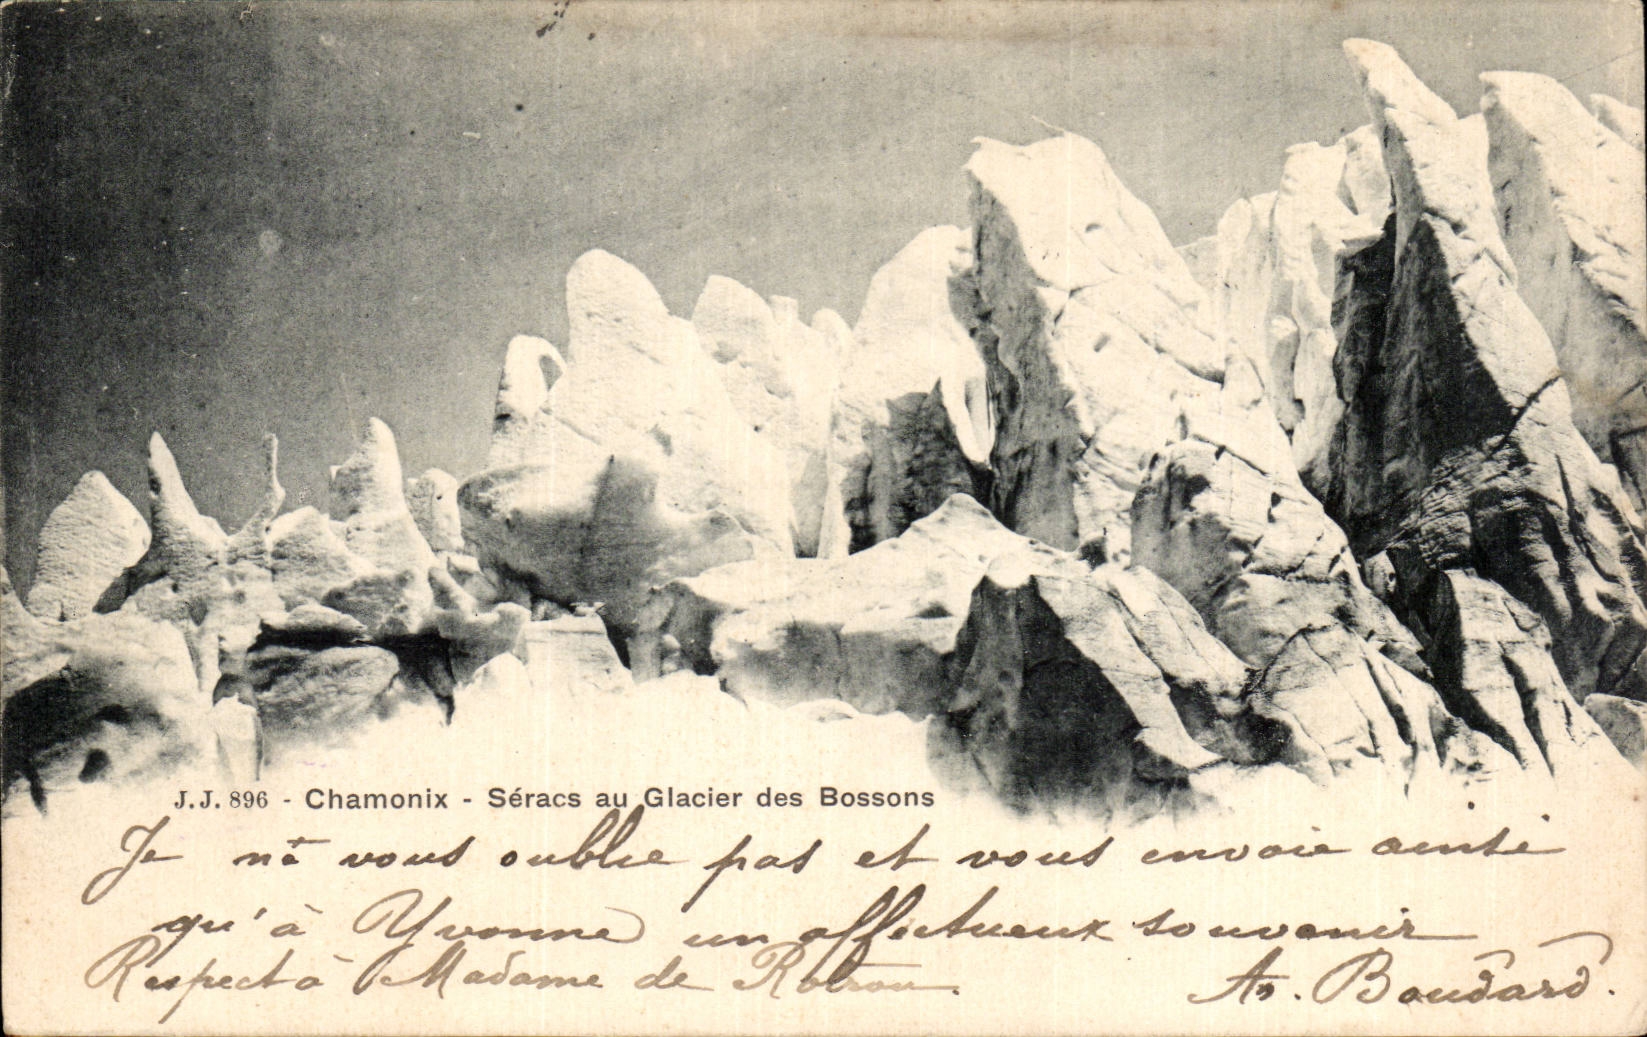 J.J. 896 - Chamonix - Séracs au Glacier des Bossons
Je ne vous oublie pas et vous envoie ainsi
qu'à Yvonne un affectueux souvenir
Respect à Madame de Rotrou.
An. Boudard.